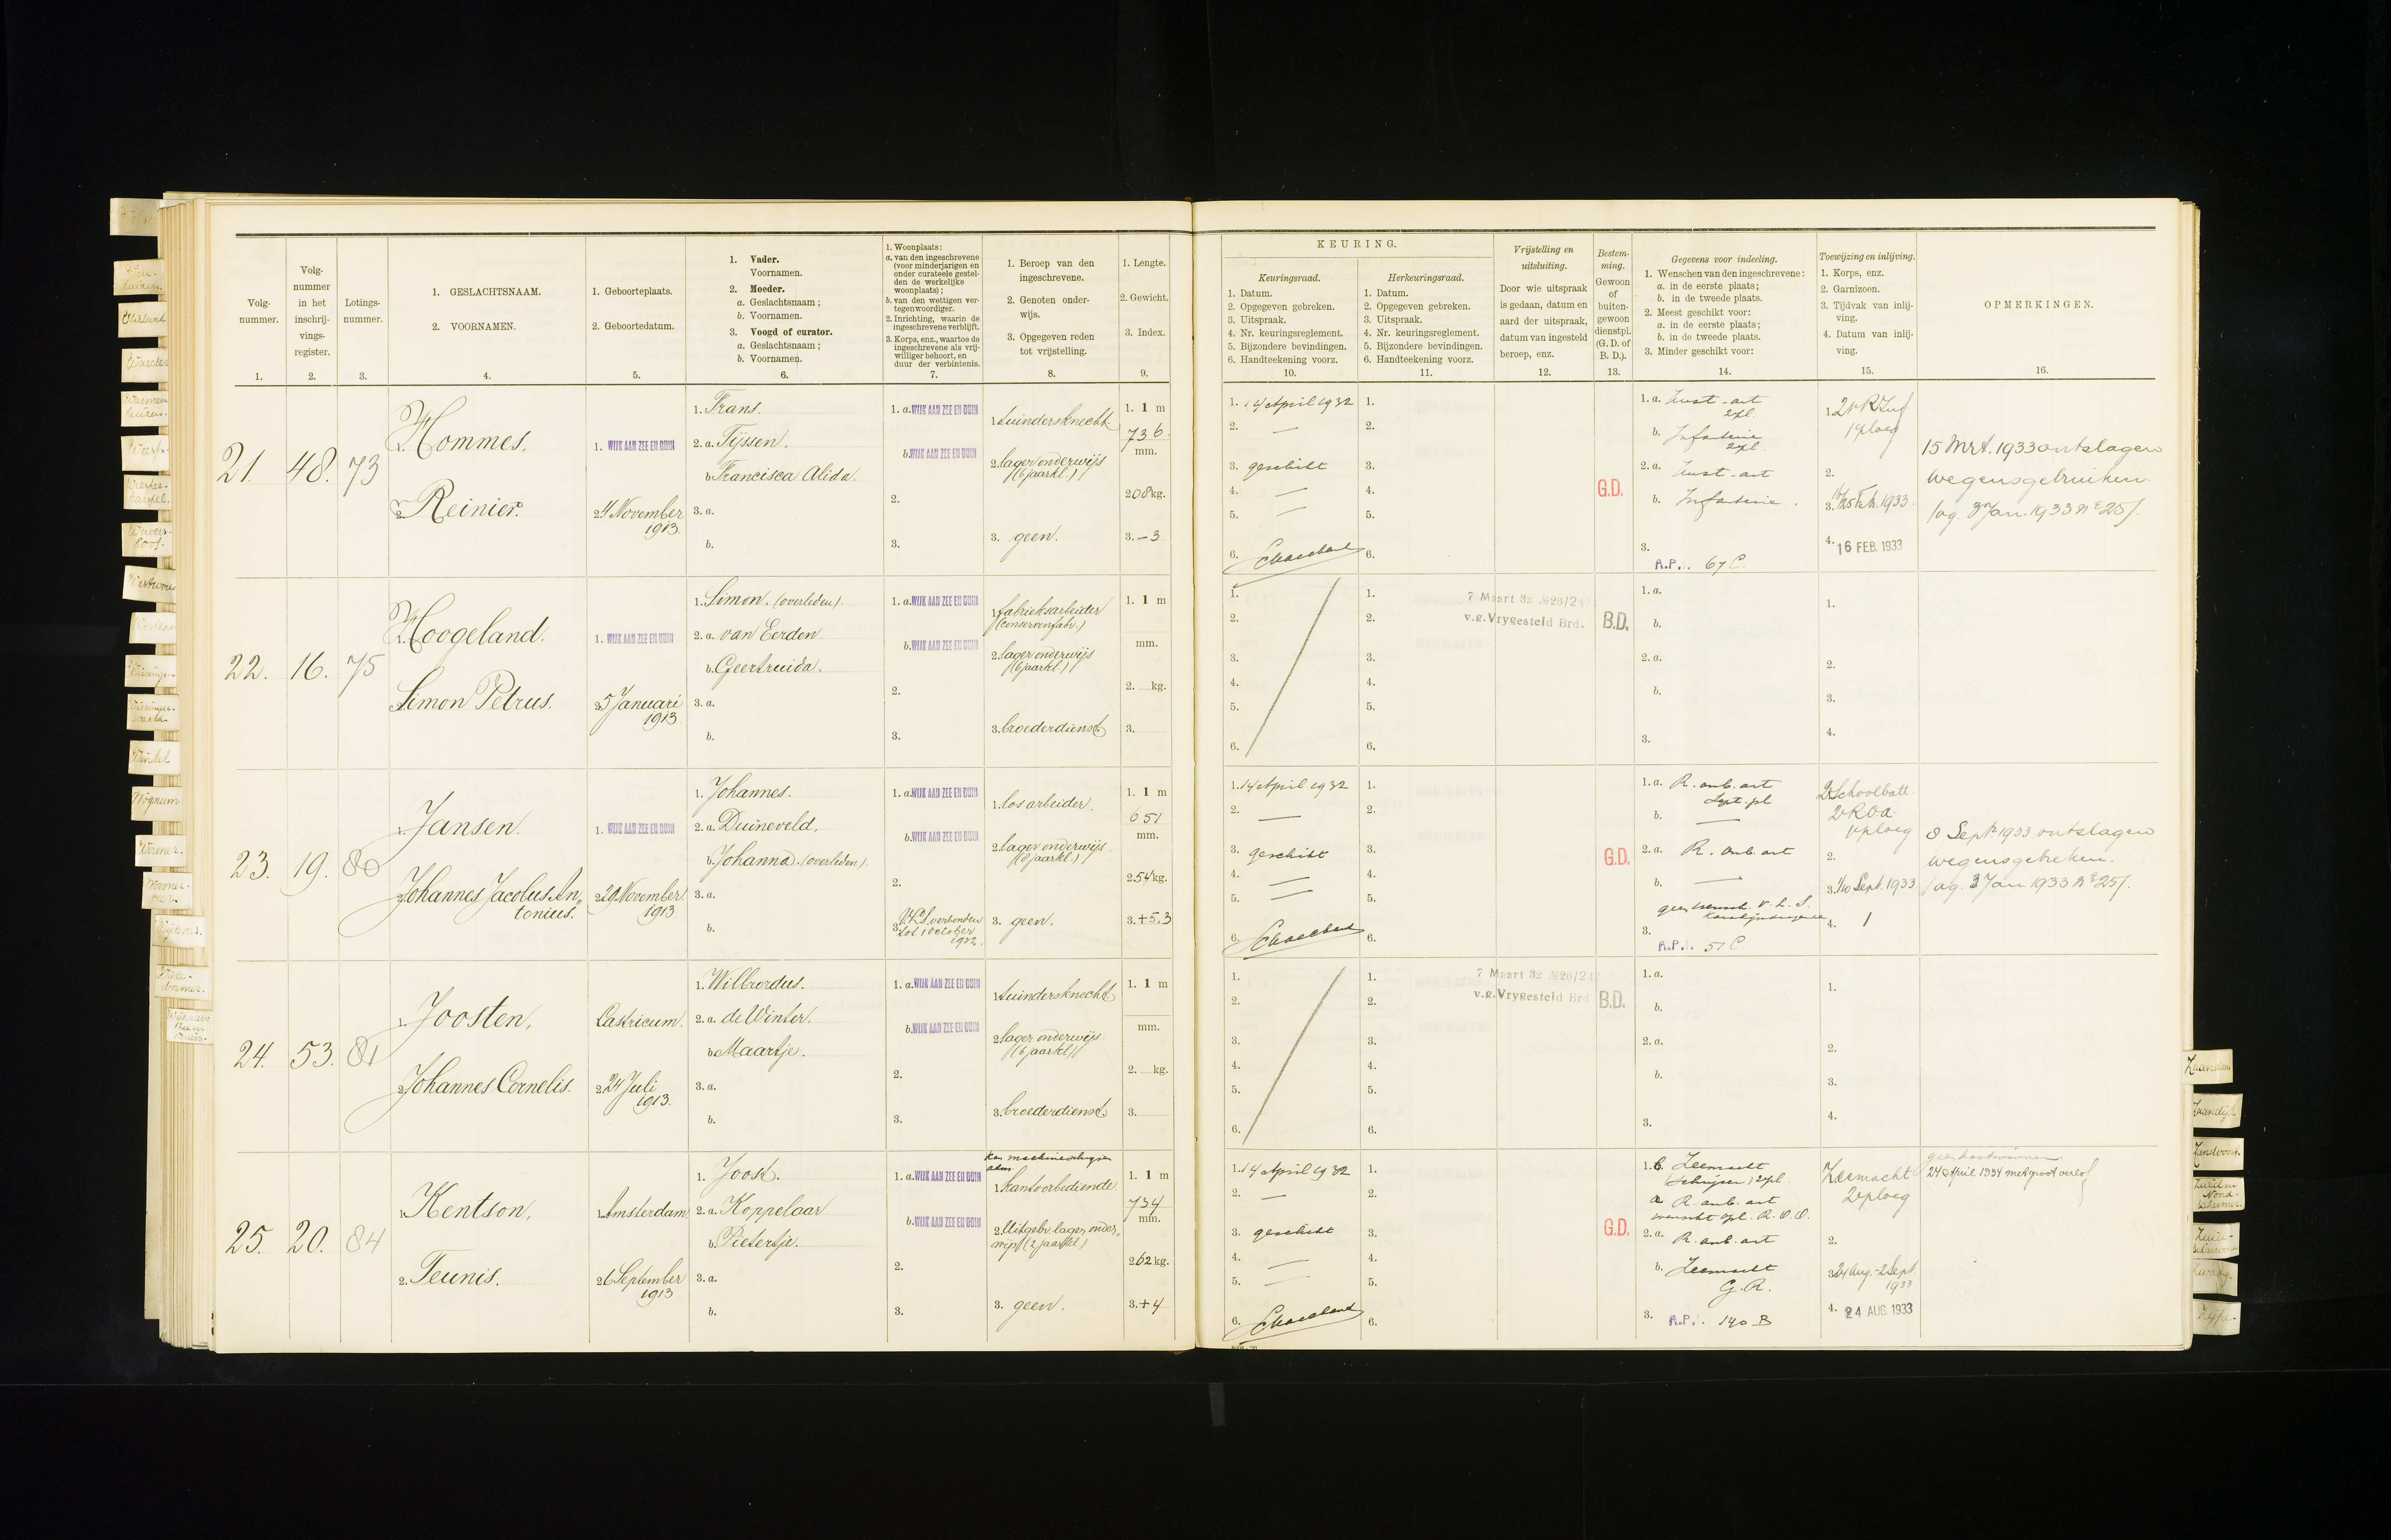 KEURING.
Volg-
nummer.
Volg-
nummer
in het
inschrij-
vings-
register.
Lotings-
nummer.
1. GESLACHTSNAAM.
2. VOORNAMEN.
1. Geboorteplaats.
2. Geboortedatum.
1. Vader.
Voornamen.
2. Moeder.
a. Geslachtsnaam;
b. Voornamen.
3. Voogd of curator.
a. Geslachtsnaam;
b. Voornamen.
1. Woonplaats:
a. van den ingeschrevene
(voor minderjarigen en
onder curateele gestel-
den de werkelijke
woonplaats);
b. van den wettigen ver-
tegenwoordiger.
2. Inrichting, waarin de
ingeschrevene verblijft.
3. Korps, enz., waartoe de
ingeschrevene als vrij-
williger behoort, en
duur der verbintenis.
1. Beroep van den
ingeschrevene.
2. Genoten onder-
wijs.
3. Opgegeven reden
tot vrijstelling.
1. Lengte.
2. Gewicht.
3. Index.
Keuringsraad.
1. Datum.
2. Opgegeven gebreken.
3. Uitspraak.
4. Nr. keuringsreglement.
5. Bijzondere bevindingen.
6. Handteekening voorz.
Herkeuringsraad.
1. Datum.
2. Opgegeven gebreken.
3. Uitspraak.
4. Nr. keuringsreglement.
5. Bijzondere bevindingen.
6. Handteekening voorz.
Vrijstelling en
uitsluiting.
Door wie uitspraak
is gedaan, datum en
aard der uitspraak,
datum van ingesteld
beroep, enz.
Bestem-
ming.
Gewoon
of
buiten-
gewoon
dienstpl.
(G. D. of
B. D.).
Gegevens voor indeeling.
1. Wenschen van den ingeschrevene:
a. in de eerste plaats;
b. in de tweede plaats.
2. Meest geschikt voor:
a. in de eerste plaats;
b. in de tweede plaats.
3. Minder geschikt voor:
Toewijzing en inlijving.
1. Korps, enz.
2. Garnizoen.
3. Tijdvak van inlij-
ving.
4. Datum van inlij-
ving.
OPMERKINGEN.
1. 2. 3. 4. 5. 6. 7. 8. 9. 10. 11. 12. 13. 14. 15. 16.
21. 48. 73
1. Hommes.
2. Reinier.
1. WIJK AAN ZEE EN DUIN
2. 4 November
1913.
1. Frans.
2. a. Tijssen.
b. Francisca Alida.
3. a.
b.
1. a. WIJK AAN ZEE EN DUIN
b. WIJK AAN ZEE EN DUIN
2.
3.
1. tuindersknecht
2. lager onderwijs
(6 jaarkl.)
3. geen.
1. 1 m
736
mm.
2. 08 kg.
3. -3
1. 14 April 1932
2. —
3. geschikt
4. —
5. —
6.
1.
2.
3.
4.
5.
6.
G.D.
1. a. Kust-art
b. Infanterie
2. a. Kust-art
b. Infanterie.
3.
A.P. 67 C.
1.
1e ploeg
2.
3. Feb. 1933
4. 16 FEB. 1933
15 Mrt. 1933 ontslagen
wegens gebreken
22. 16. 75
1. Hoogeland.
Simon Petrus.
1. WIJK AAN ZEE EN DUIN
2. 5 Januari
1913
1. Simon. (overleden).
2. a. van Eerden
b. Geertruida.
3. a.
b.
1. a. WIJK AAN ZEE EN DUIN
b. WIJK AAN ZEE EN DUIN
2.
3.
1. fabrieksarbeider
(conservenfabr.)
2. lager onderwijs
(6 jaarkl.)
3. broederdienst.
1. 1 m
mm.
2. kg.
3.
1.
2.
3.
4.
5.
6.
1.
2.
3.
4.
5.
6.
7 Maart 32 № 26/24
v.g. Vrygesteld Brd.
B.D.
1. a.
b.
2. a.
b.
3.
1.
2.
3.
4.
23. 19. 80
1. Jansen.
2. Johannes Jacobus An„
tonius.
1. WIJK AAN ZEE EN DUIN
2. 20 November
1913
1. Johannes.
2. a. Duineveld.
b. Johanna. (overleden).
3. a.
b.
1. a. WIJK AAN ZEE EN DUIN
b. WIJK AAN ZEE EN DUIN
2.
3. verbonden
tot 1 October
1932.
1. los arbeider.
2. lager onderwijs.
(8 jaarkl.)
3. geen.
1. 1 m
651
mm.
2. 54 kg.
3. +5.3
1. 14 April 1932
2. —
3. geschikt
4. —
5. —
6.
1.
2.
3.
4.
5.
6.
G.D.
1. a. R. onb. art
b. —
2. a. R. onb. art
b. —
3.
A.P. 51 C
2 Schoolbatt.
2.
3. Sept. 1933.
4.
8 Sept. 1933 ontslagen
wegens gebreken.
24. 53. 81
1. Joosten,
2. Johannes Cornelis.
Castricum.
2. 24 Juli
1913.
1. Wilbrordus.
2. a. de Winter.
b. Maartje.
3. a.
b.
1. a. WIJK AAN ZEE EN DUIN
b. WIJK AAN ZEE EN DUIN
2.
3.
1. tuindersknecht.
2. lager onderwijs.
(6 jaarkl.)
3. broederdienst.
1. 1 m
mm.
2. kg.
3.
1.
2.
3.
4.
5.
6.
1.
2.
3.
4.
5.
6.
7 Maart 32 № 26/24
v.g. Vrygesteld Brd
B.D.
1. a.
b.
2. a.
b.
3.
1.
2.
3.
4.
25. 20. 84
1. Kentson,
2. Teunis.
1. Amsterdam.
2. 6 September
1913
1. Joost.
2. a. Koppelaar
b. Pietertje.
3. a.
b.
1. a. WIJK AAN ZEE EN DUIN
b. WIJK AAN ZEE EN DUIN
2.
3.
1. kantoorbediende.
2. Uitgebr. lager onder„
wijs (2 jaarkl.)
3. geen.
1. 1 m
734
mm.
2. 62 kg.
3. +4
1. 14 April 1932
2. —
3. geschikt
4. —
5. —
6.
1.
2.
3.
4.
5.
6.
G.D.
1. b. Zeemacht
a. R. onb. art
2. a. R. onb. art
b. Zeemacht
G.R.
3.
A.P. 140 B
Zeemacht
2e ploeg
2.
3. 24 Aug. - 2 Sept.
1933
4. 24 AUG. 1933
geen kostwinner
24 April 1934 met groot verlof